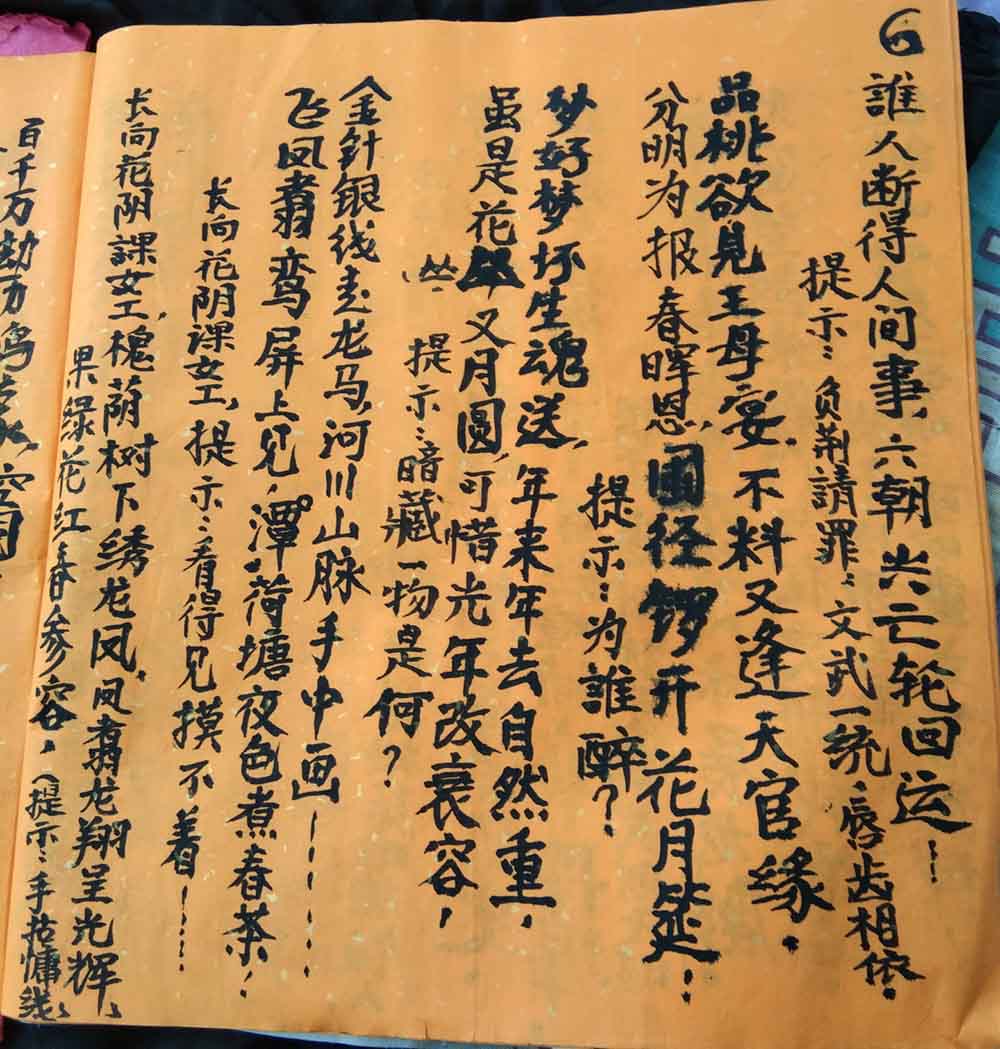 6
誰人断得人间事，六朝兴亡轮回运！
提示：负荆請罪：文武一统，唇齿相依。
品桃欲見王母宴。不料又逢天官缘。
分明为报春晖恩，園径锣开花月筵！
提示：为誰醉？
梦好梦坏生魂送，年来年去自然重，
虽是花 又月圆，可惜光年改衰容，
提示：暗藏一物是何？
金针银线走龙马，河川山脉手中画
飞凤翥鸾屏上见，潭荷塘夜色煮春茶！
长向花阴课女工，提示：看得见摸不着
长向花阴課女工，槐荫树下绣龙凤，凤翥龙翔呈光辉，
果绿花红春参容，（提示：手 线
百千万劫